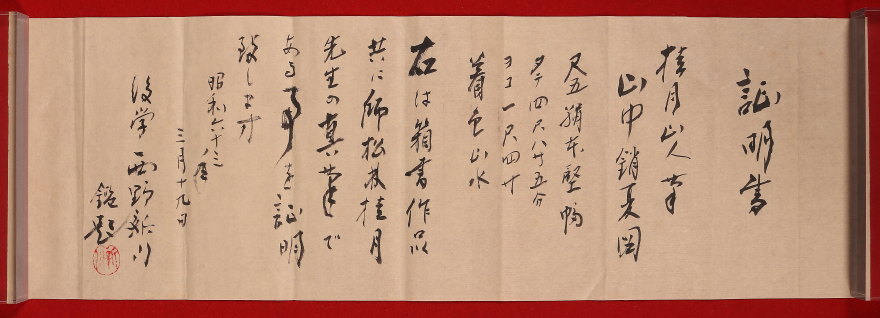 証明書
桂月山人筆
山中銷夏図
尺五絹本竪幅
タテ四尺八寸五分
ヨコ一尺四寸
着色山水
右は箱書作品
共に師松林桂月
先生の真筆で
ある事を証明
致します
昭和六十三年
三月十九日
後学 西野新川
鑑題